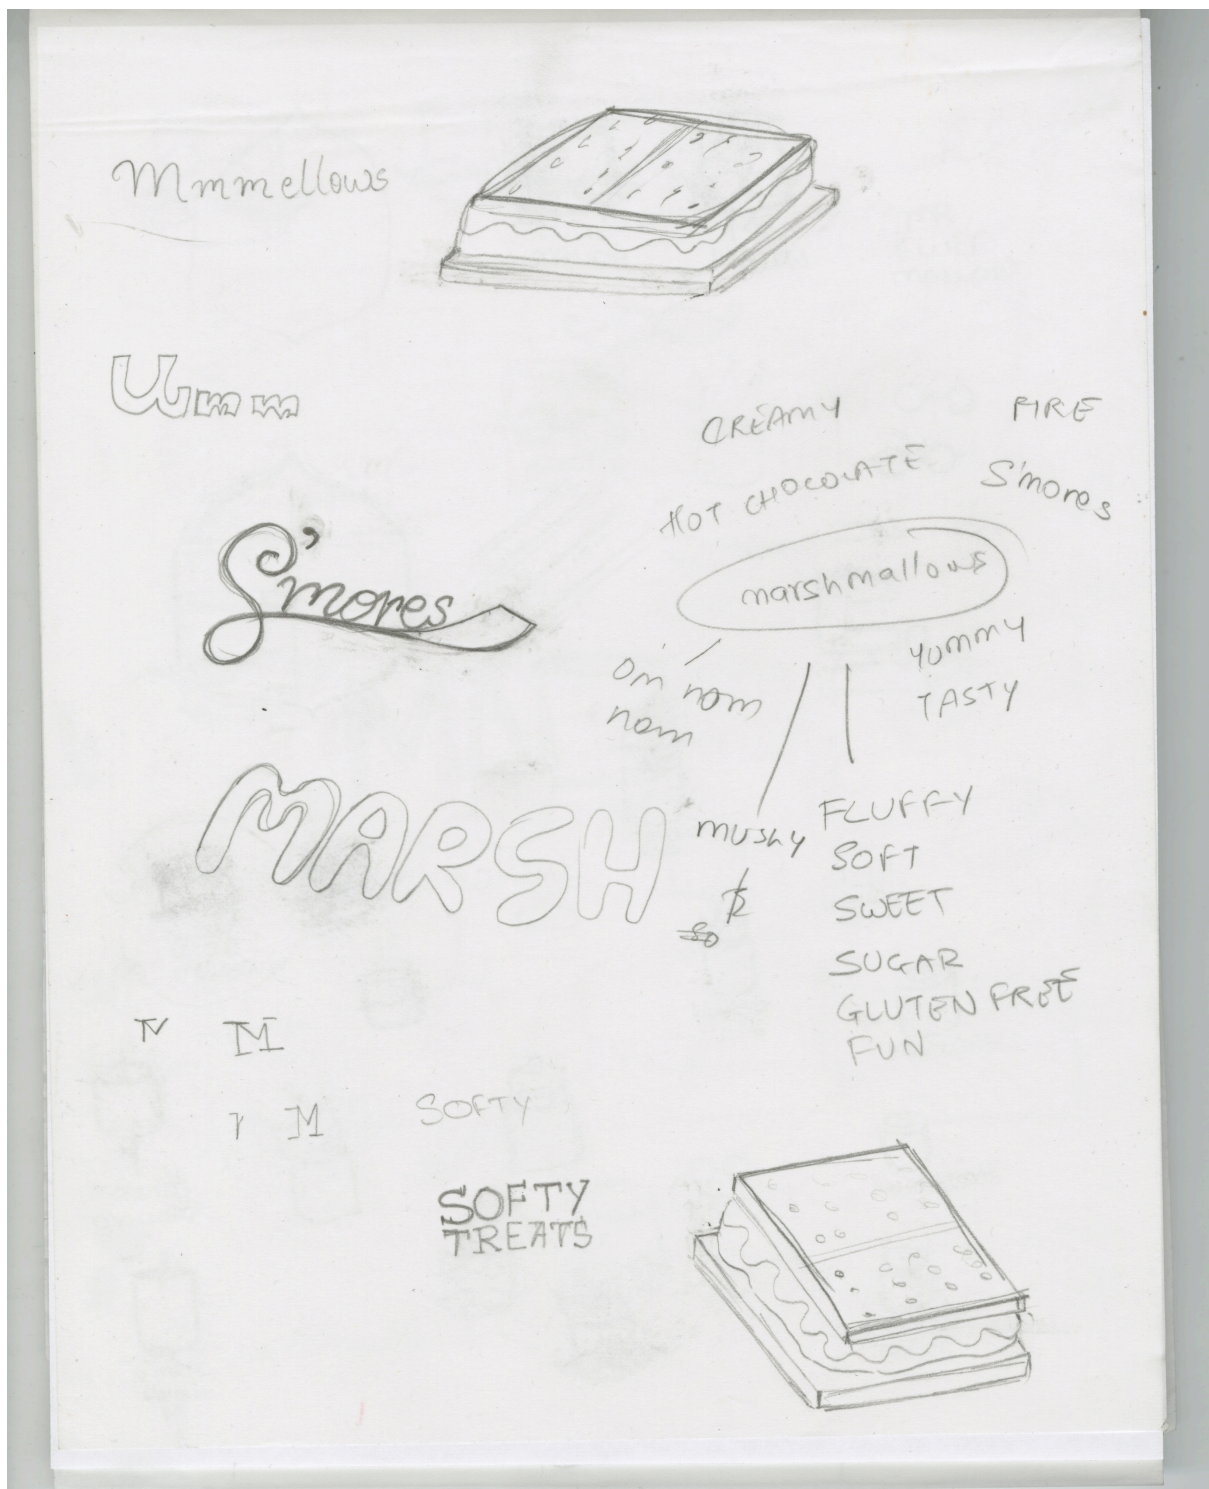 Mmmellows
Umm
CREAMY
FIRE
HOT CHOCOLATE
S'mores
S'mores
marshmallows
YUMMY
TASTY
om nom
nom
MARSH
mushy
FLUFFY
SOFT
SWEET
SUGAR
GLUTEN FREE
FUN
M
M
SOFTY
SOFTY
TREATS